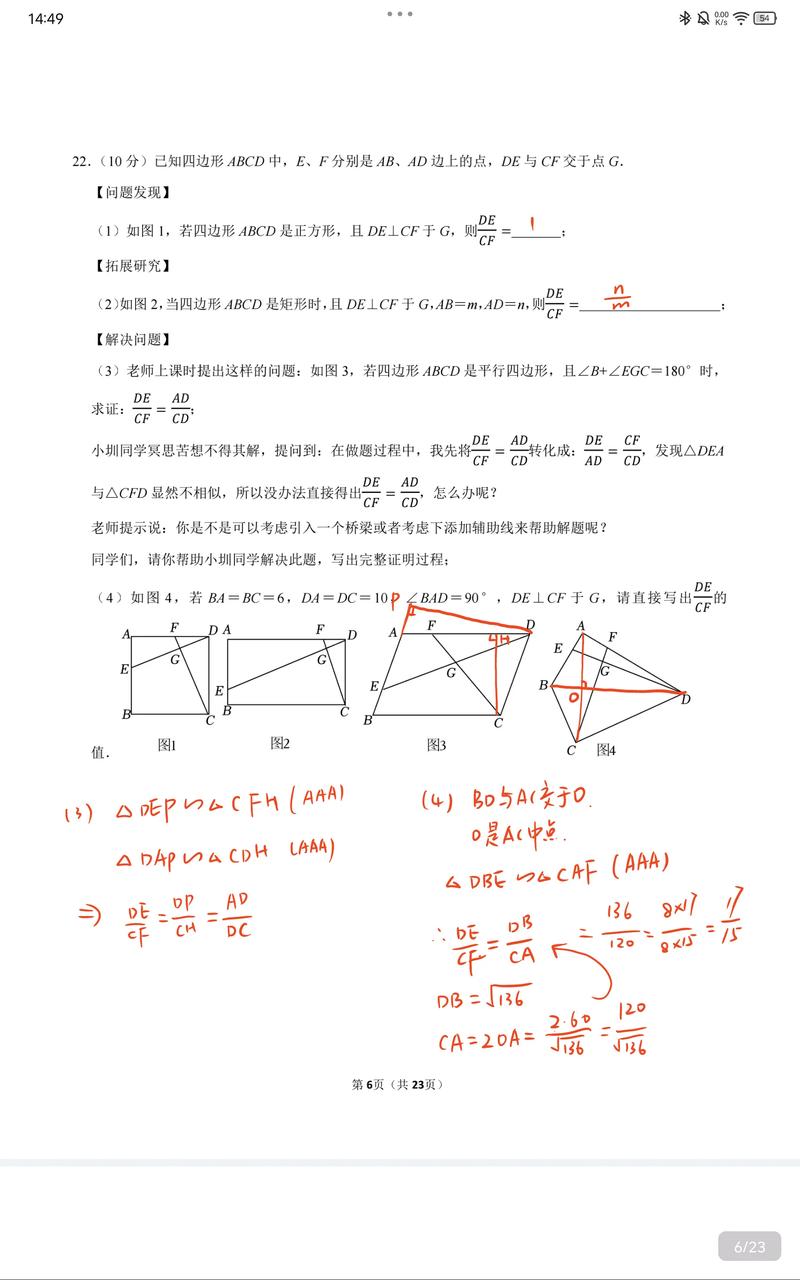 14:49
0.00
K/s
54
22.（10 分）已知四边形 ABCD 中，E、F 分别是 AB、AD 边上的点，DE 与 CF 交于点 G．
【问题发现】
（1）如图 1，若四边形 ABCD 是正方形，且 DE⊥CF 于 G，则DE/CF=___1___；
【拓展研究】
（2）如图 2，当四边形 ABCD 是矩形时，且 DE⊥CF 于 G，AB＝m，AD＝n，则DE/CF=___n/m___；
【解决问题】
（3）老师上课时提出这样的问题：如图 3，若四边形 ABCD 是平行四边形，且∠B+∠EGC＝180°时，
求证：DE/CF=AD/CD；
小圳同学冥思苦想不得其解，提问到：在做题过程中，我先将DE/CF=AD/CD转化成：DE/AD=CF/CD，发现△DEA
与△CFD 显然不相似，所以没办法直接得出DE/CF=AD/CD，怎么办呢？
老师提示说：你是不是可以考虑引入一个桥梁或者考虑下添加辅助线来帮助解题呢？
同学们，请你帮助小圳同学解决此题，写出完整证明过程；
（4）如图 4，若 BA＝BC＝6，DA＝DC＝10 ∠BAD＝90°，DE⊥CF 于 G，请直接写出DE/CF的
A F D E G B C
A F D E G B C
P A F H D E G B C
A F E G B O D C
图1
图2
图3
图4
值．
(3) △DEP∽△CFH (AAA)
△DAP∽△CDH (AAA)
⇒ DE/CF=DP/CH=AD/DC
(4) BD与AC交于O.
O是AC中点.
△DBE∽△CAF (AAA)
∴DE/CF=DB/CA=136/120=8×17/8×15=17/15
DB=√136
CA=2OA=2·60/√136=120/√136
第 6页（共 23页）
6/23